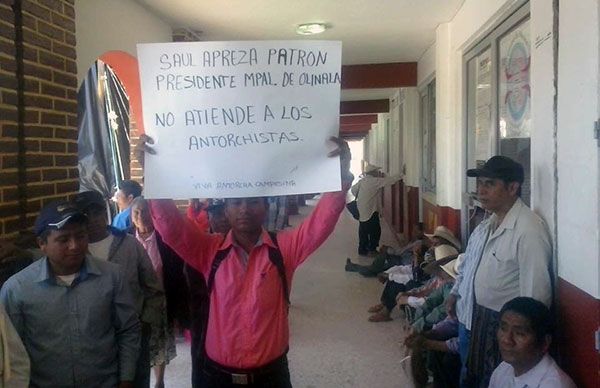 SAUL APREZA PATRON
PRESIDENTE MPAL. DE OLINALA
NO ATIENDE A LOS
ANTORCHISTAS.
VIVA ANTORCHA CAMPESINA